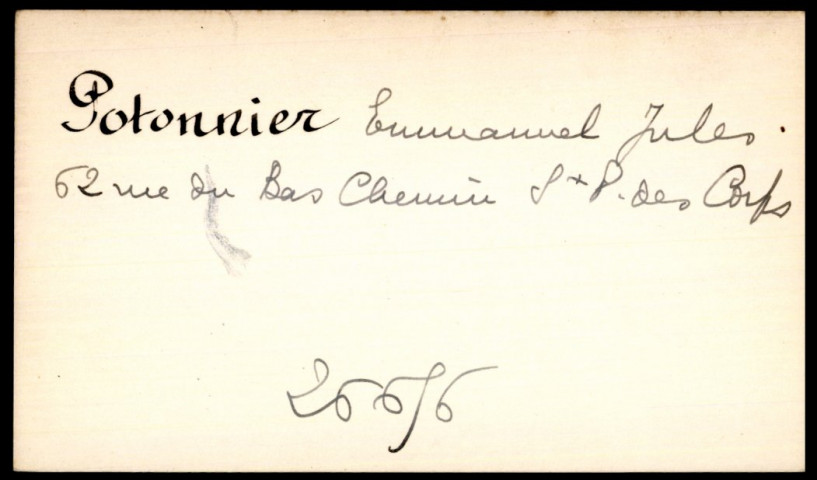 Potonnier Emmanuel Jules.
62 rue du Bas Chemin St P. des Corps